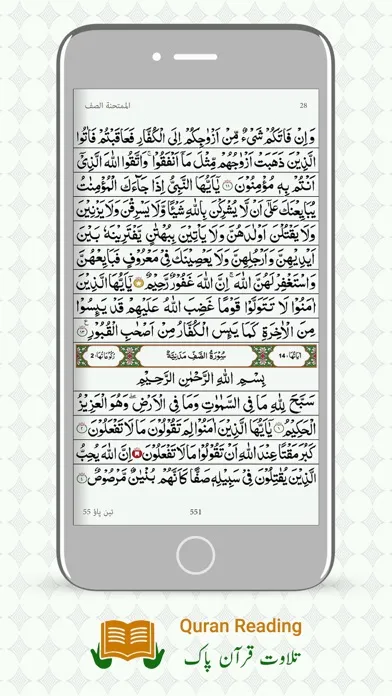 الممتحنة الصف 28
وَاِنْ فَاتَكُمْ شَیْءٌ مِّنْ اَزْوَاجِكُمْ اِلَی الْكُفَّارِ فَعَاقَبْتُمْ فَاٰتُوا
الَّذِیْنَ ذَهَبَتْ اَزْوَاجُهُمْ مِّثْلَ مَاۤ اَنْفَقُوْا ؕ وَاتَّقُوا اللّٰهَ الَّذِیْۤ
اَنْتُمْ بِهٖ مُؤْمِنُوْنَ ﴿۱۱﴾ یٰۤاَیُّهَا النَّبِیُّ اِذَا جَآءَكَ الْمُؤْمِنٰتُ
یُبَایِعْنَكَ عَلٰۤی اَنْ لَّا یُشْرِكْنَ بِاللّٰهِ شَیْـًٔا وَّلَا یَسْرِقْنَ وَلَا یَزْنِیْنَ
وَلَا یَقْتُلْنَ اَوْلَادَهُنَّ وَلَا یَاْتِیْنَ بِبُهْتَانٍ یَّفْتَرِیْنَهٗ بَیْنَ
اَیْدِیْهِنَّ وَاَرْجُلِهِنَّ وَلَا یَعْصِیْنَكَ فِیْ مَعْرُوْفٍ فَبَایِعْهُنَّ
وَاسْتَغْفِرْ لَهُنَّ اللّٰهَ ؕ اِنَّ اللّٰهَ غَفُوْرٌ رَّحِیْمٌ ﴿۱۲﴾ یٰۤاَیُّهَا الَّذِیْنَ
اٰمَنُوْا لَا تَتَوَلَّوْا قَوْمًا غَضِبَ اللّٰهُ عَلَیْهِمْ قَدْ یَىِٕسُوْا
مِنَ الْاٰخِرَةِ كَمَا یَىِٕسَ الْكُفَّارُ مِنْ اَصْحٰبِ الْقُبُوْرِ ﴿۱۳﴾
اٰیَاتُهَا 14 سُوْرَةُ الصَّفِّ مَدَنِیَّةٌ رُكُوْعَاتُهَا 2
بِسْمِ اللّٰهِ الرَّحْمٰنِ الرَّحِیْمِ
سَبَّحَ لِلّٰهِ مَا فِی السَّمٰوٰتِ وَمَا فِی الْاَرْضِ ۚ وَهُوَ الْعَزِیْزُ
الْحَكِیْمُ ﴿۱﴾ یٰۤاَیُّهَا الَّذِیْنَ اٰمَنُوْا لِمَ تَقُوْلُوْنَ مَا لَا تَفْعَلُوْنَ ﴿۲﴾
كَبُرَ مَقْتًا عِنْدَ اللّٰهِ اَنْ تَقُوْلُوْا مَا لَا تَفْعَلُوْنَ ﴿۳﴾ اِنَّ اللّٰهَ یُحِبُّ
الَّذِیْنَ یُقَاتِلُوْنَ فِیْ سَبِیْلِهٖ صَفًّا كَاَنَّهُمْ بُنْیَانٌ مَّرْصُوْصٌ ﴿۴﴾
تین پاؤ 55 551
Quran Reading
تلاوت قرآن پاک